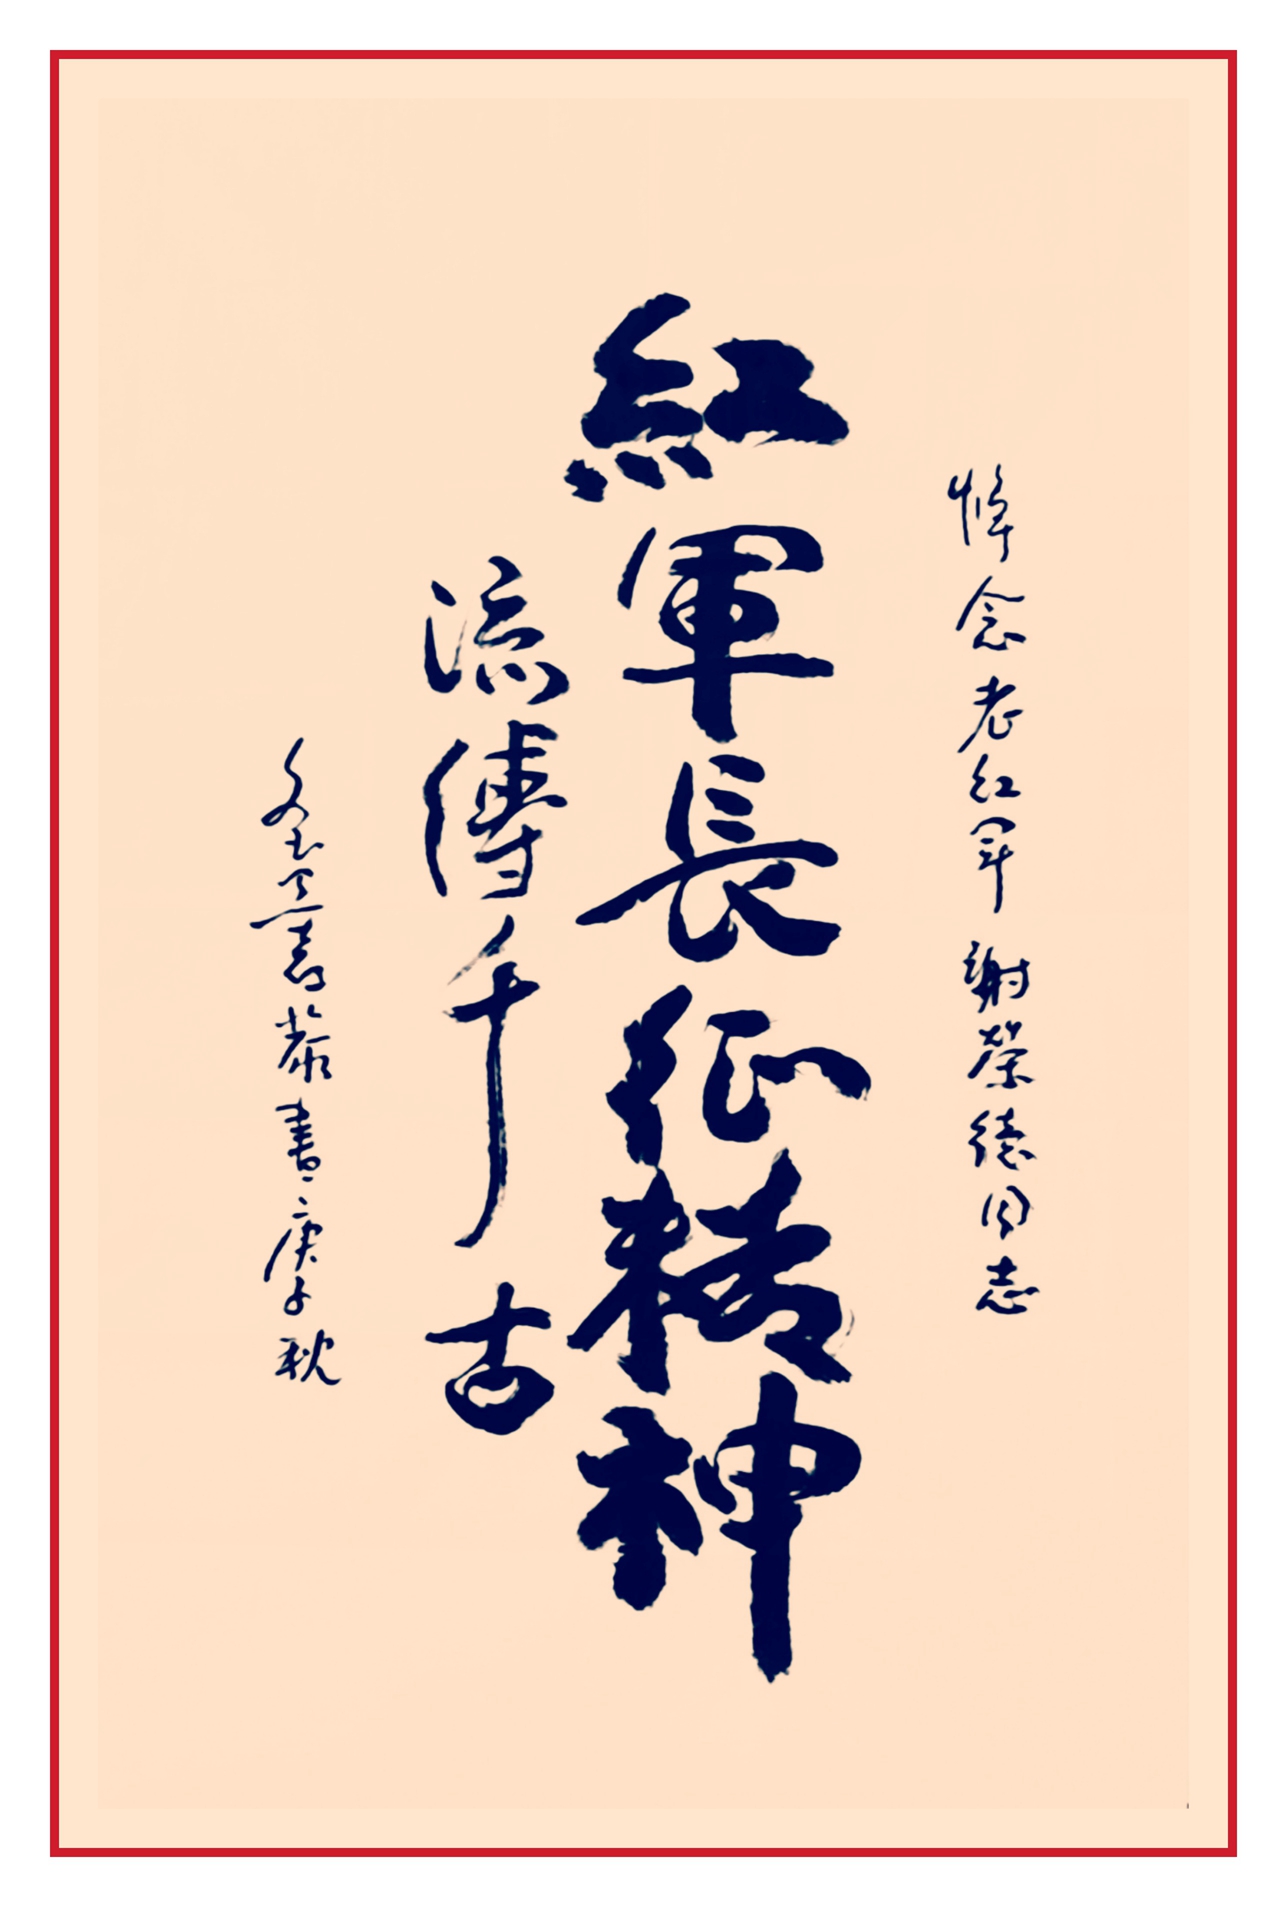 悼念老红军 謝榮德同志
紅軍長征精神
流傳千古
書 庚子秋